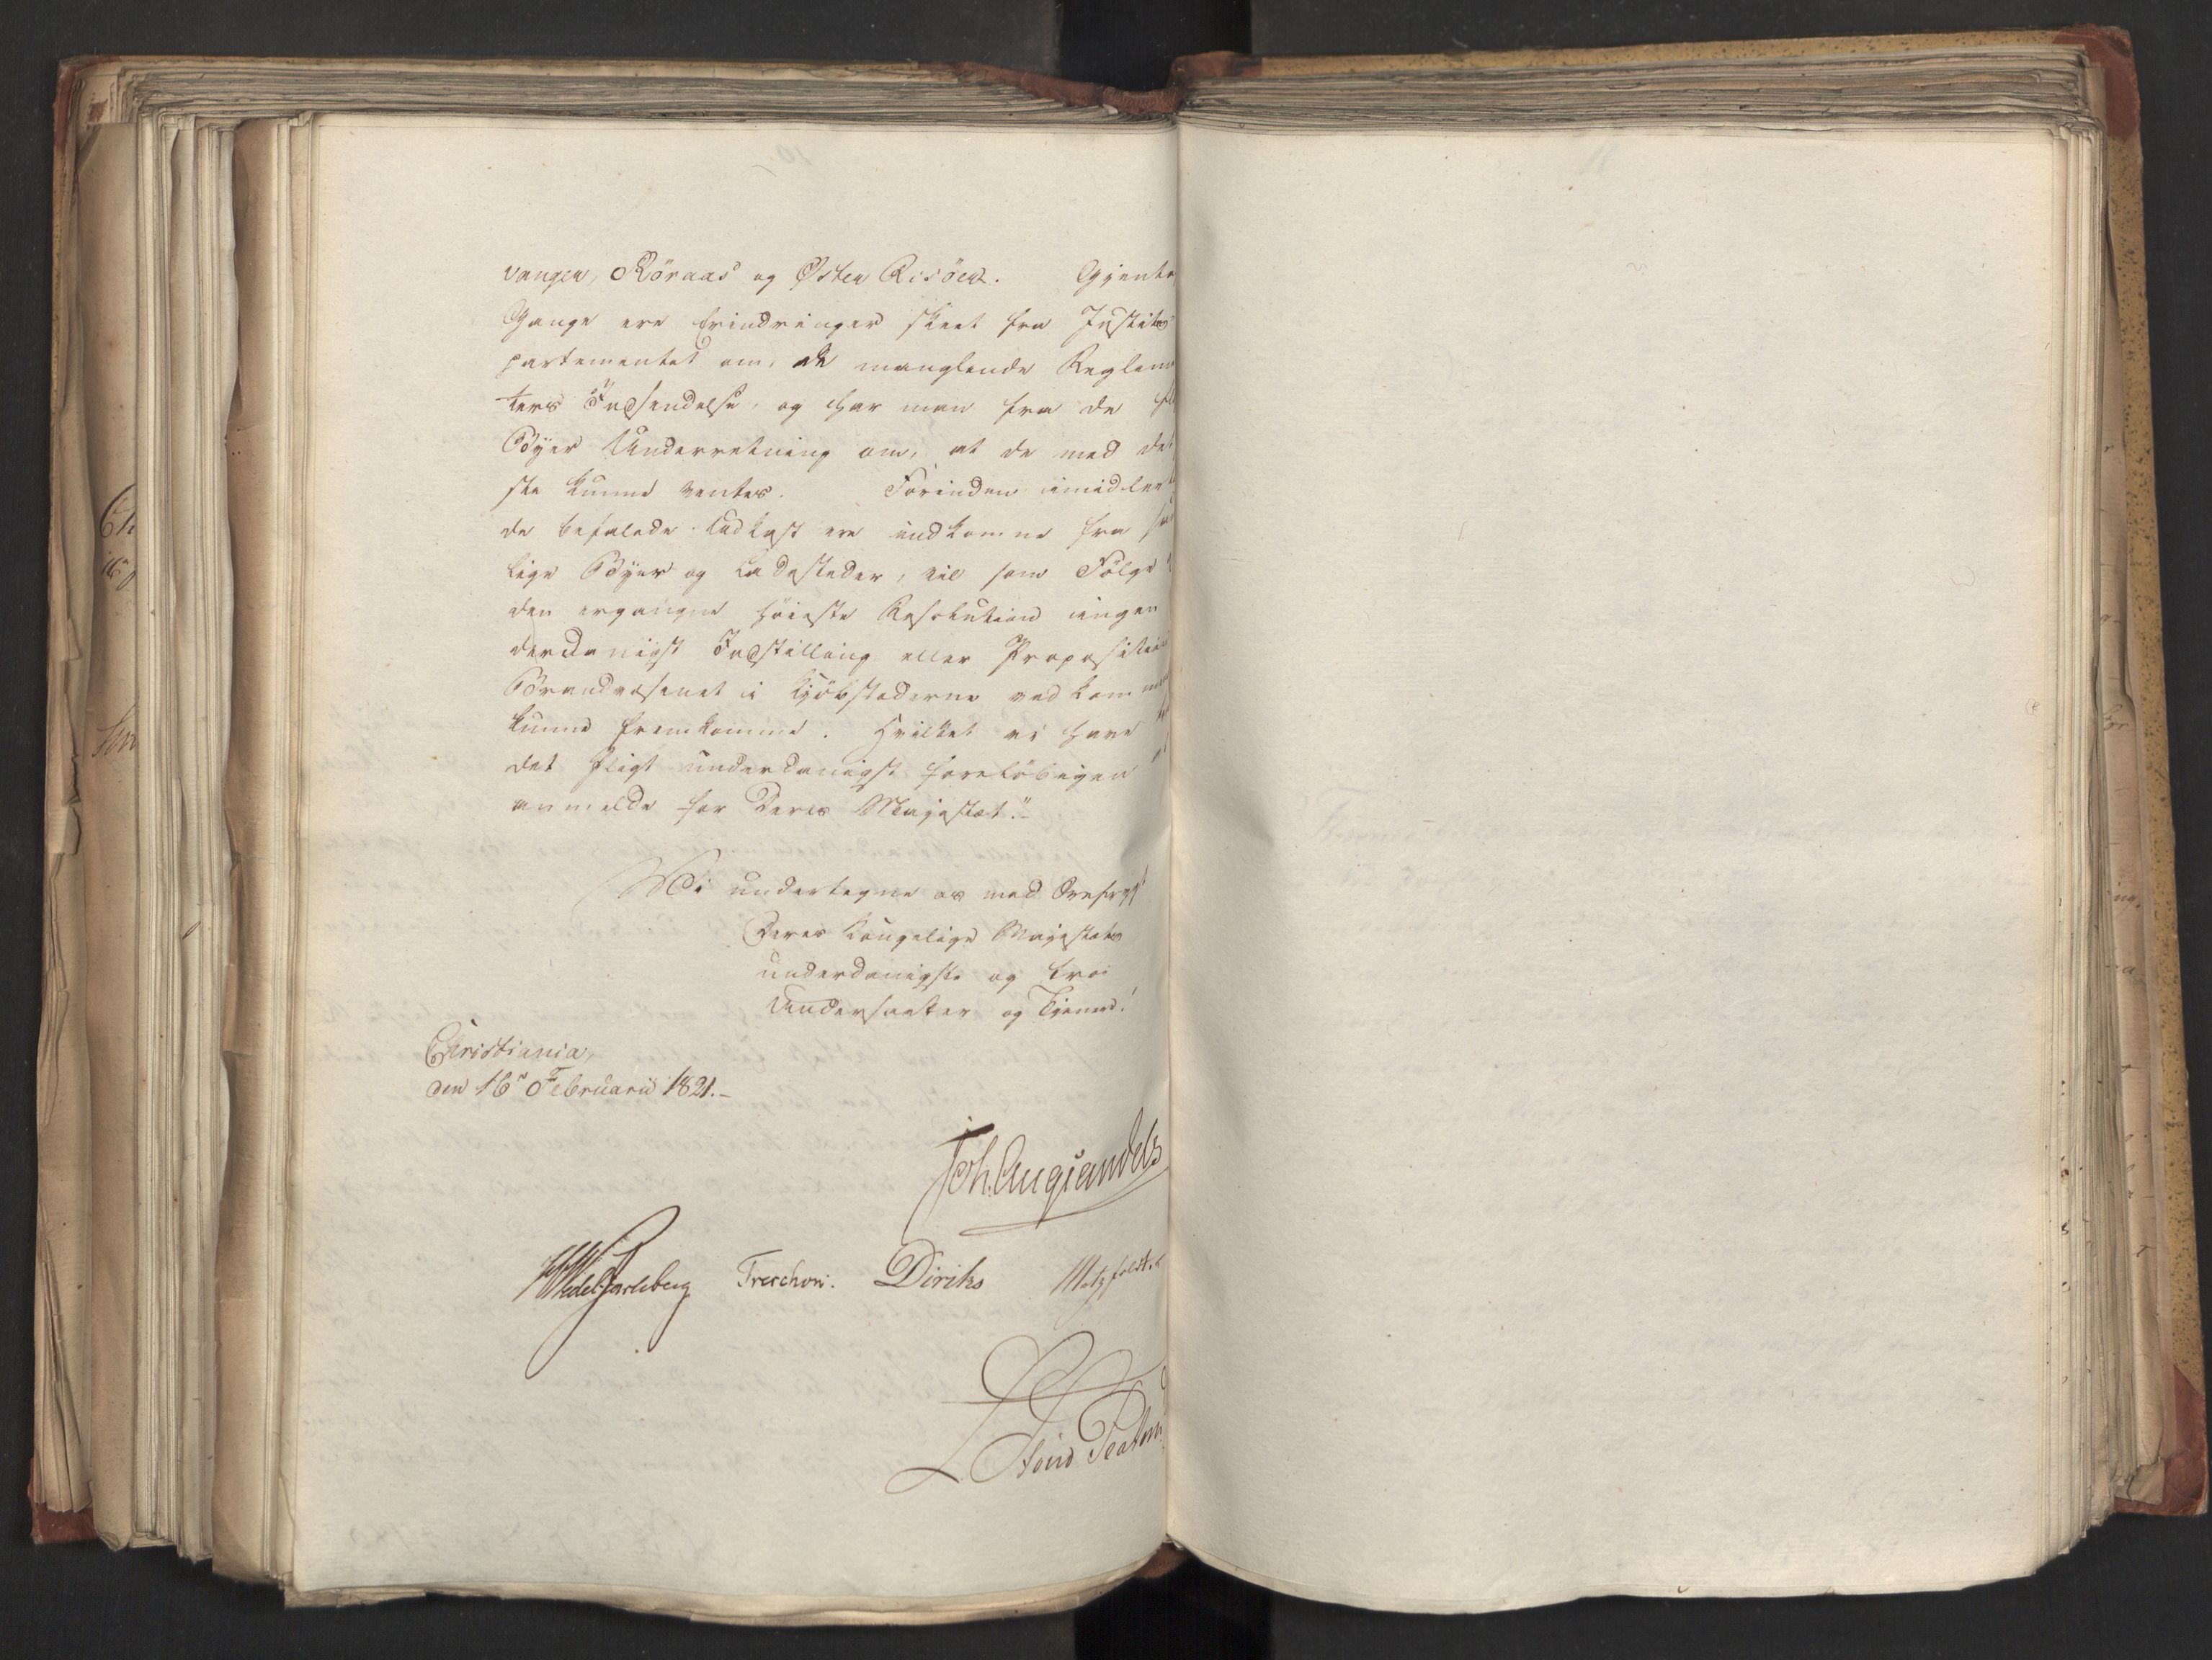 vangen, Röraas og Øster Risöer. Gjenta
Gange ere Erindringer skeet fra Justits
partementet om, de manglende Reglem
ters Indsendelse, og har man fra de
Byer Underretning om, at de med det
ste kunne ventes. Forinden imidler
de befalede Udkast ere indkomne fra
lige Byer og Ladesteder, vil som Fölge
den ergangne höieste Resolution ingen
derdanigst Indstilling eller Proposition
Brandvæsenet i Kjöbstæderne vedkomm
kunne fremkomme. Hvilket vi have
det Pligt underdanigst foreløbigen
anmelde for Deres Majestæt."-
Vi undertegne os med Ærefrygt
Deres Kongelige Majestæts
underdanigste og troe
Undersaatter og Tjenere!
Christiania,
den 16de Februarii 1821.-
Joh. Aug. Sandels
H Wedel Jarlsberg Treschow. Diriks Motzfeldt